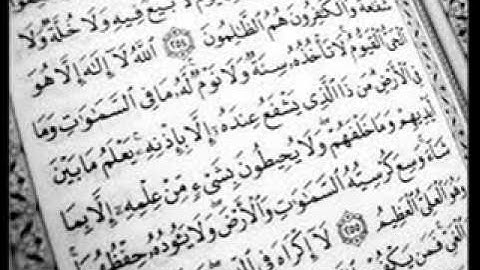 يَوْمٌ لَّا بَيْعٌ فِيهِ وَلَا خُلَّةٌ وَلَا
شَفَٰعَةٌ وَٱلْكَٰفِرُونَ هُمُ ٱلظَّٰلِمُونَ ٢٥٤ ٱللَّهُ لَآ إِلَٰهَ إِلَّا هُوَ
ٱلْحَىُّ ٱلْقَيُّومُ لَا تَأْخُذُهُۥ سِنَةٌ وَلَا نَوْمٌ لَّهُۥ مَا فِى ٱلسَّمَٰوَٰتِ وَمَا
فِى ٱلْأَرْضِ مَن ذَا ٱلَّذِى يَشْفَعُ عِندَهُۥٓ إِلَّا بِإِذْنِهِۦ يَعْلَمُ مَا بَيْنَ
أَيْدِيهِمْ وَمَا خَلْفَهُمْ وَلَا يُحِيطُونَ بِشَىْءٍ مِّنْ عِلْمِهِۦٓ إِلَّا بِمَا
شَآءَ وَسِعَ كُرْسِيُّهُ ٱلسَّمَٰوَٰتِ وَٱلْأَرْضَ وَلَا يَـُٔودُهُۥ حِفْظُهُمَا
وَهُوَ ٱلْعَلِىُّ ٱلْعَظِيمُ ٢٥٥ لَآ إِكْرَاهَ فِى
ٱلْغَىِّ فَمَن يَكْفُرْ